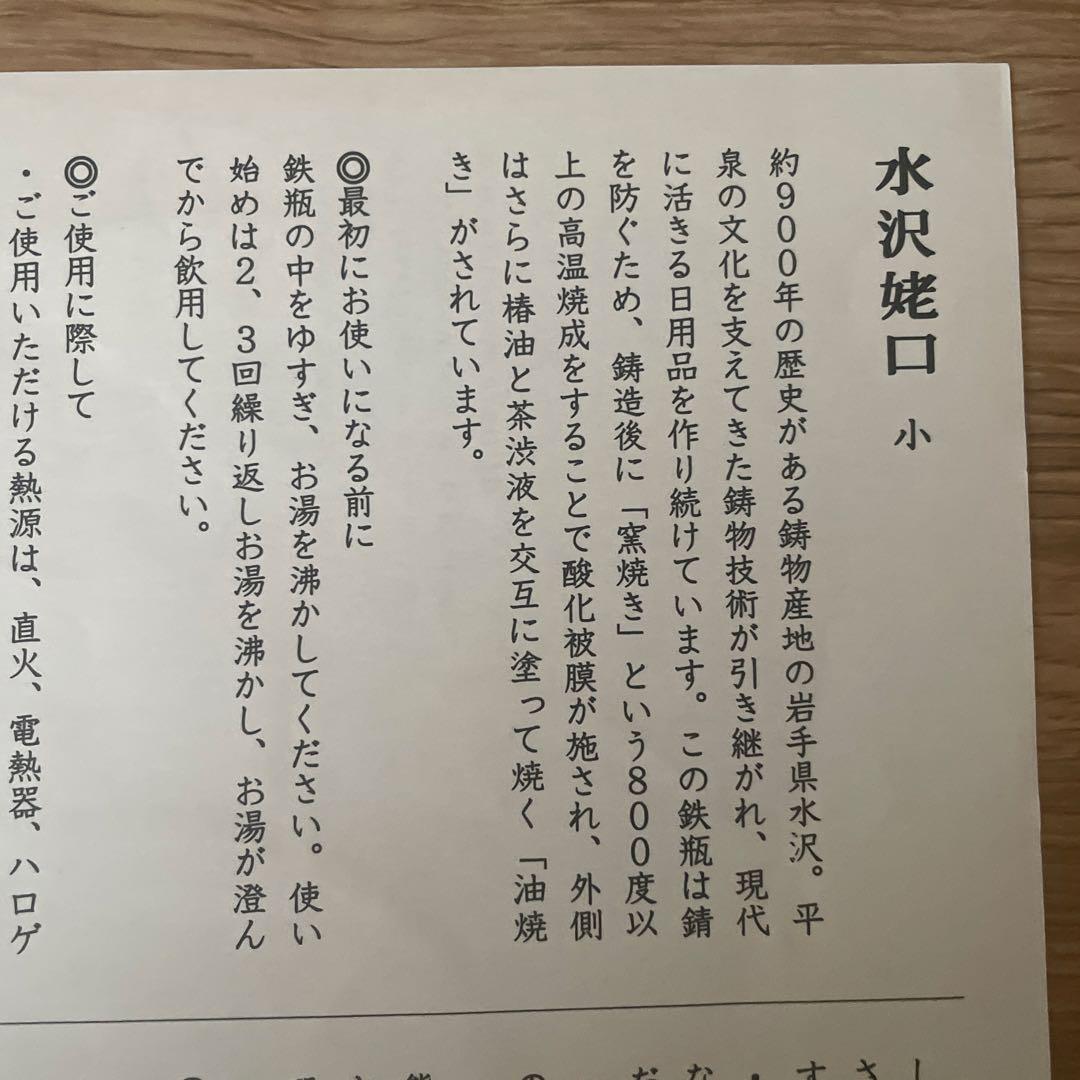 水沢姥口 小
約900年の歴史がある鋳物産地の岩手県水沢。平
泉の文化を支えてきた鋳物技術が引き継がれ、現代
に活きる日用品を作り続けています。この鉄瓶は錆
を防ぐため、鋳造後に「窯焼き」という800度以
上の高温焼成をすることで酸化被膜が施され、外側
はさらに椿油と茶渋液を交互に塗って焼く「油焼
き」がされています。
◎最初にお使いになる前に
鉄瓶の中をゆすぎ、お湯を沸かしてください。使い
始めは2、3回繰り返しお湯を沸かし、お湯が澄ん
でから飲用してください。
◎ご使用に際して
・ご使用いただける熱源は、直火、電熱器、ハロゲ